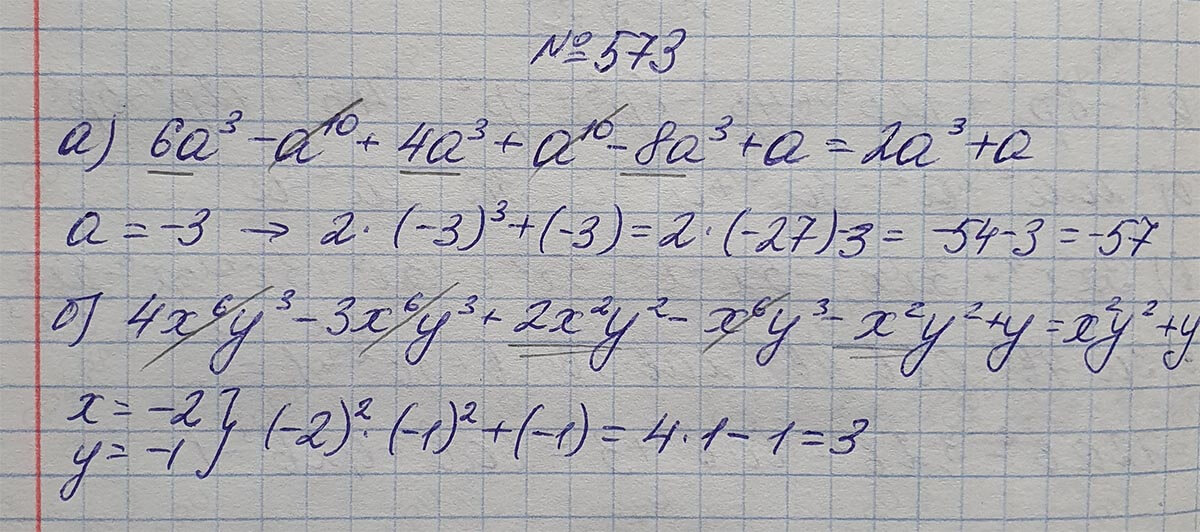 №573
а) 6a³ - a¹⁰ + 4a³ + a¹⁰ - 8a³ + a = 2a³ + a
a = -3 → 2 · (-3)³ + (-3) = 2 · (-27) - 3 = -54 - 3 = -57
б) 4x⁶y³ - 3x⁶y³ + 2x²y² - x⁶y³ - x²y² + y = x²y² + y
x = -2
y = -1 } (-2)² · (-1)² + (-1) = 4 · 1 - 1 = 3